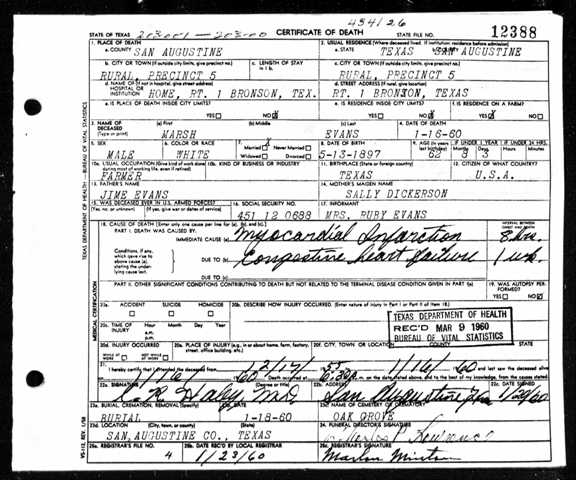 454126
STATE OF TEXAS 203001-203-00 CERTIFICATE OF DEATH STATE FILE NO. 12388
1. PLACE OF DEATH
a. COUNTY SAN AUGUSTINE
2. USUAL RESIDENCE (Where deceased lived. If institution: residence before admission)
a. STATE TEXAS SAN AUGUSTINE
b. CITY OR TOWN (If outside city limits, give precinct no.)
RURAL, PRECINCT 5
c. LENGTH OF STAY in 1 b.
c. CITY OR TOWN (If outside city limits, give precinct no.)
RURAL, PRECINCT 5
d. NAME OF (If not in hospital, give street address) HOSPITAL OR INSTITUTION HOME, RT. 1 BRONSON, TEX.
RT. 1 BRONSON, TEXAS
e. IS PLACE OF DEATH INSIDE CITY LIMITS?
YES NO X
e. IS RESIDENCE INSIDE CITY LIMITS?
YES NO X
f. IS RESIDENCE ON A FARM?
YES X NO
3. NAME OF DECEASED (Type or print)
(a) First MARSH
(b) Middle
(c) Last EVANS
4. DATE OF DEATH
1-16-60
5. SEX
MALE
6. COLOR OR RACE
WHITE
7. Married X Never Married
Widowed Divorced
8. DATE OF BIRTH
5-13-1897
9. AGE (In years last birthday) 62
IF UNDER 1 YEAR IF UNDER 24 HRS.
8 3
10a. USUAL OCCUPATION (Give kind of work done most of working life, even if retired)
FARMER
10b. KIND OF BUSINESS OR INDUSTRY
11. BIRTHPLACE (State or foreign country)
TEXAS
12. CITIZEN OF WHAT COUNTRY?
U.S.A.
13. FATHER'S NAME
JIME EVANS
14. MOTHER'S MAIDEN NAME
SALLY DICKERSON
15. WAS DECEASED EVER IN U.S. ARMED FORCES?
(Yes, no, or unknown) (If yes, give war or dates of service)
16. SOCIAL SECURITY NO.
451 12 0688
17. INFORMANT
MRS. RUBY EVANS
18. CAUSE OF DEATH (Enter only one cause per line for (a), (b), and (c).)
PART I. DEATH WAS CAUSED BY:
IMMEDIATE CAUSE (a) Myocardial Infarction
INTERVAL BETWEEN ONSET AND DEATH
8 hrs.
Conditions, if any, which gave rise to above cause (a), stating the underlying cause last.
DUE TO (b) Congestive heart failure 1 wk.
DUE TO (c)
PART II. OTHER SIGNIFICANT CONDITIONS CONTRIBUTING TO DEATH BUT NOT RELATED TO THE TERMINAL DISEASE CONDITION GIVEN IN PART I(a)
19. WAS AUTOPSY PERFORMED?
YES NO X
20a. ACCIDENT SUICIDE HOMICIDE
20b. DESCRIBE HOW INJURY OCCURRED. (Enter nature of injury in Part I or Part II of item 18.)
20c. TIME OF INJURY Hour Month Day Year
a.m.
p.m.
TEXAS DEPARTMENT OF HEALTH
REC'D MAR 9 1960
BUREAU OF VITAL STATISTICS
20d. INJURY OCCURRED
WHILE AT WORK NOT WHILE AT WORK
20e. PLACE OF INJURY (e.g., in or about home, farm, factory, street, office building, etc.)
20f. CITY, TOWN, OR LOCATION COUNTY STATE
21. I hereby certify that I attended the deceased from 2/17/ 55 1/16/ 60 and last saw the deceased alive
1/16 60 Death occurred at 6:30 P m. on the date stated above, and to the best of my knowledge, from the causes stated.
22a. SIGNATURE (Degree or title)
Haley M.D.
22b. ADDRESS
San Augustine
22c. DATE SIGNED
1/20/60
23a. BURIAL, CREMATION, REMOVAL (Specify)
BURIAL
23b. DATE
1-18-60
23c. NAME OF CEMETERY OR CREMATORY
OAK GROVE
23d. LOCATION (City, town, or county) (State)
SAN AUGUSTINE CO., TEXAS
24. FUNERAL DIRECTOR'S SIGNATURE
25a. REGISTRAR'S FILE NO.
4
25b. DATE REC'D BY LOCAL REGISTRAR
1/23/60
25c. REGISTRAR'S SIGNATURE
TEXAS DEPARTMENT OF HEALTH — BUREAU OF VITAL STATISTICS
MEDICAL CERTIFICATION